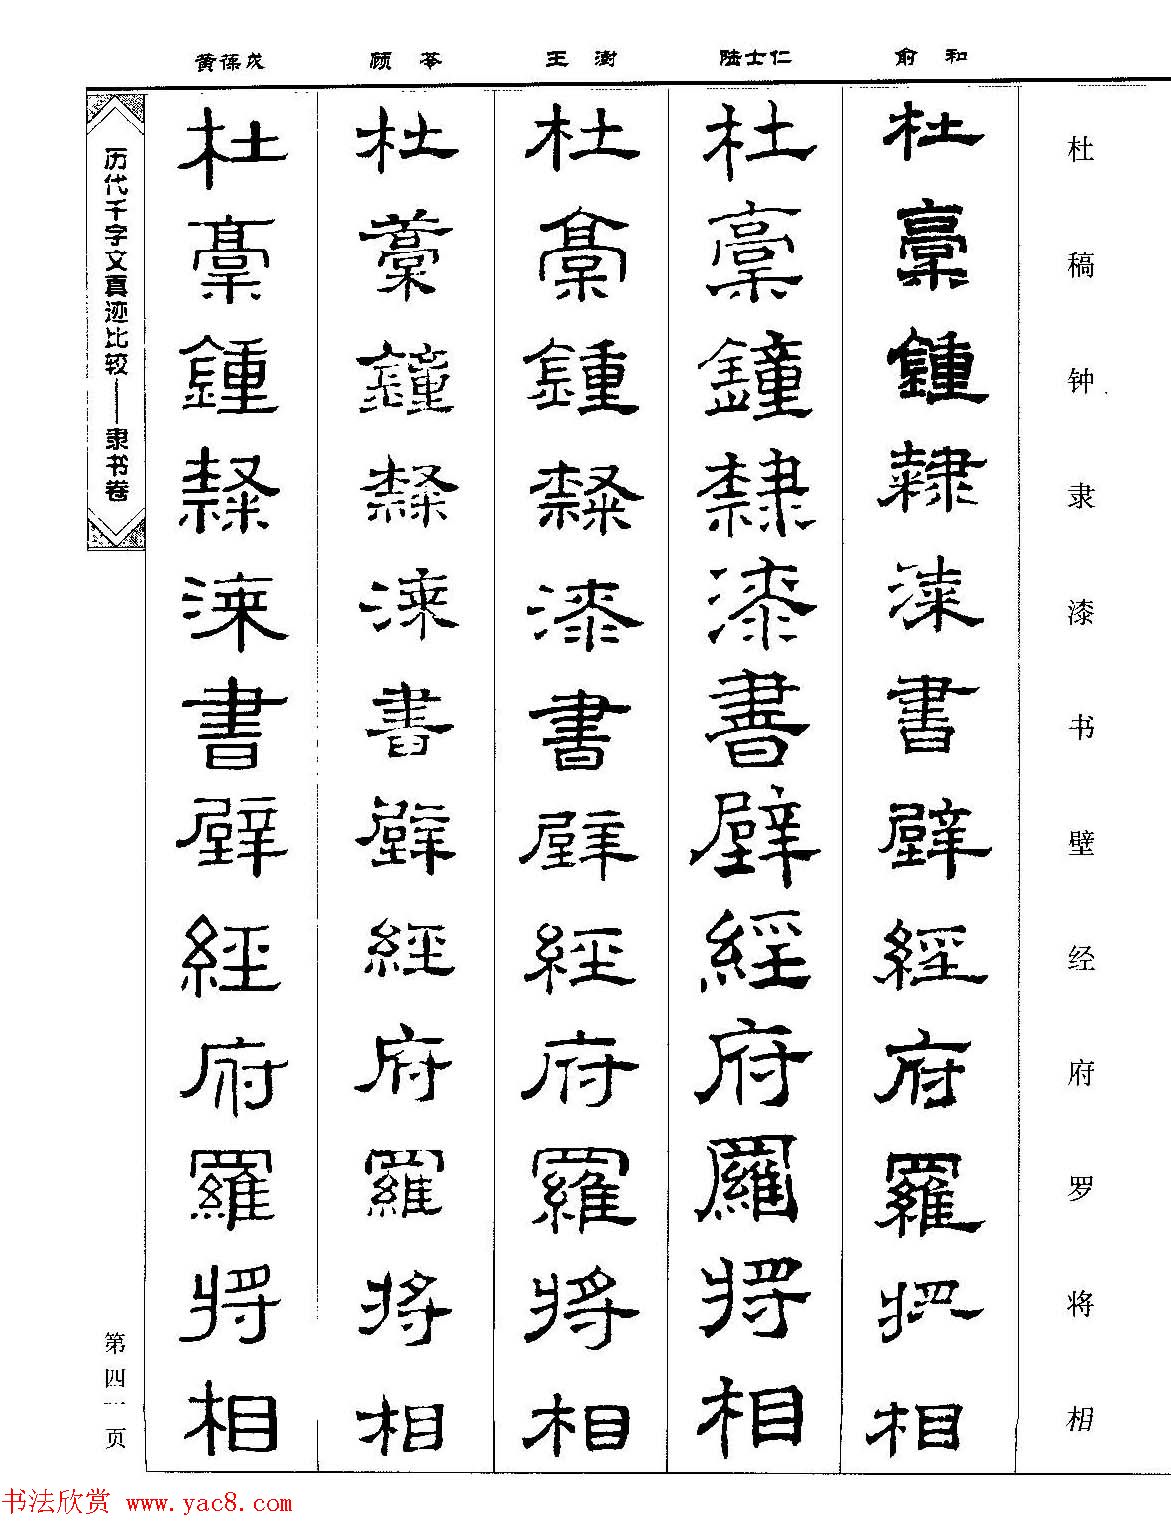 黄葆戊 顾苓 王澍 陆士仁 俞和
历代千字文真迹比较——隶书卷
杜稿钟隶漆书壁经府罗将相
杜稾鍾隸漆書壁經府羅將相
杜稾鐘隸漆書壁經府羅將相
杜稾鍾隸漆書壁經府羅將相
杜藁鐘隸漆書壁經府羅將相
杜稾鍾隸漆書壁經府羅將相
第四一页
书法欣赏 www.yac8.com